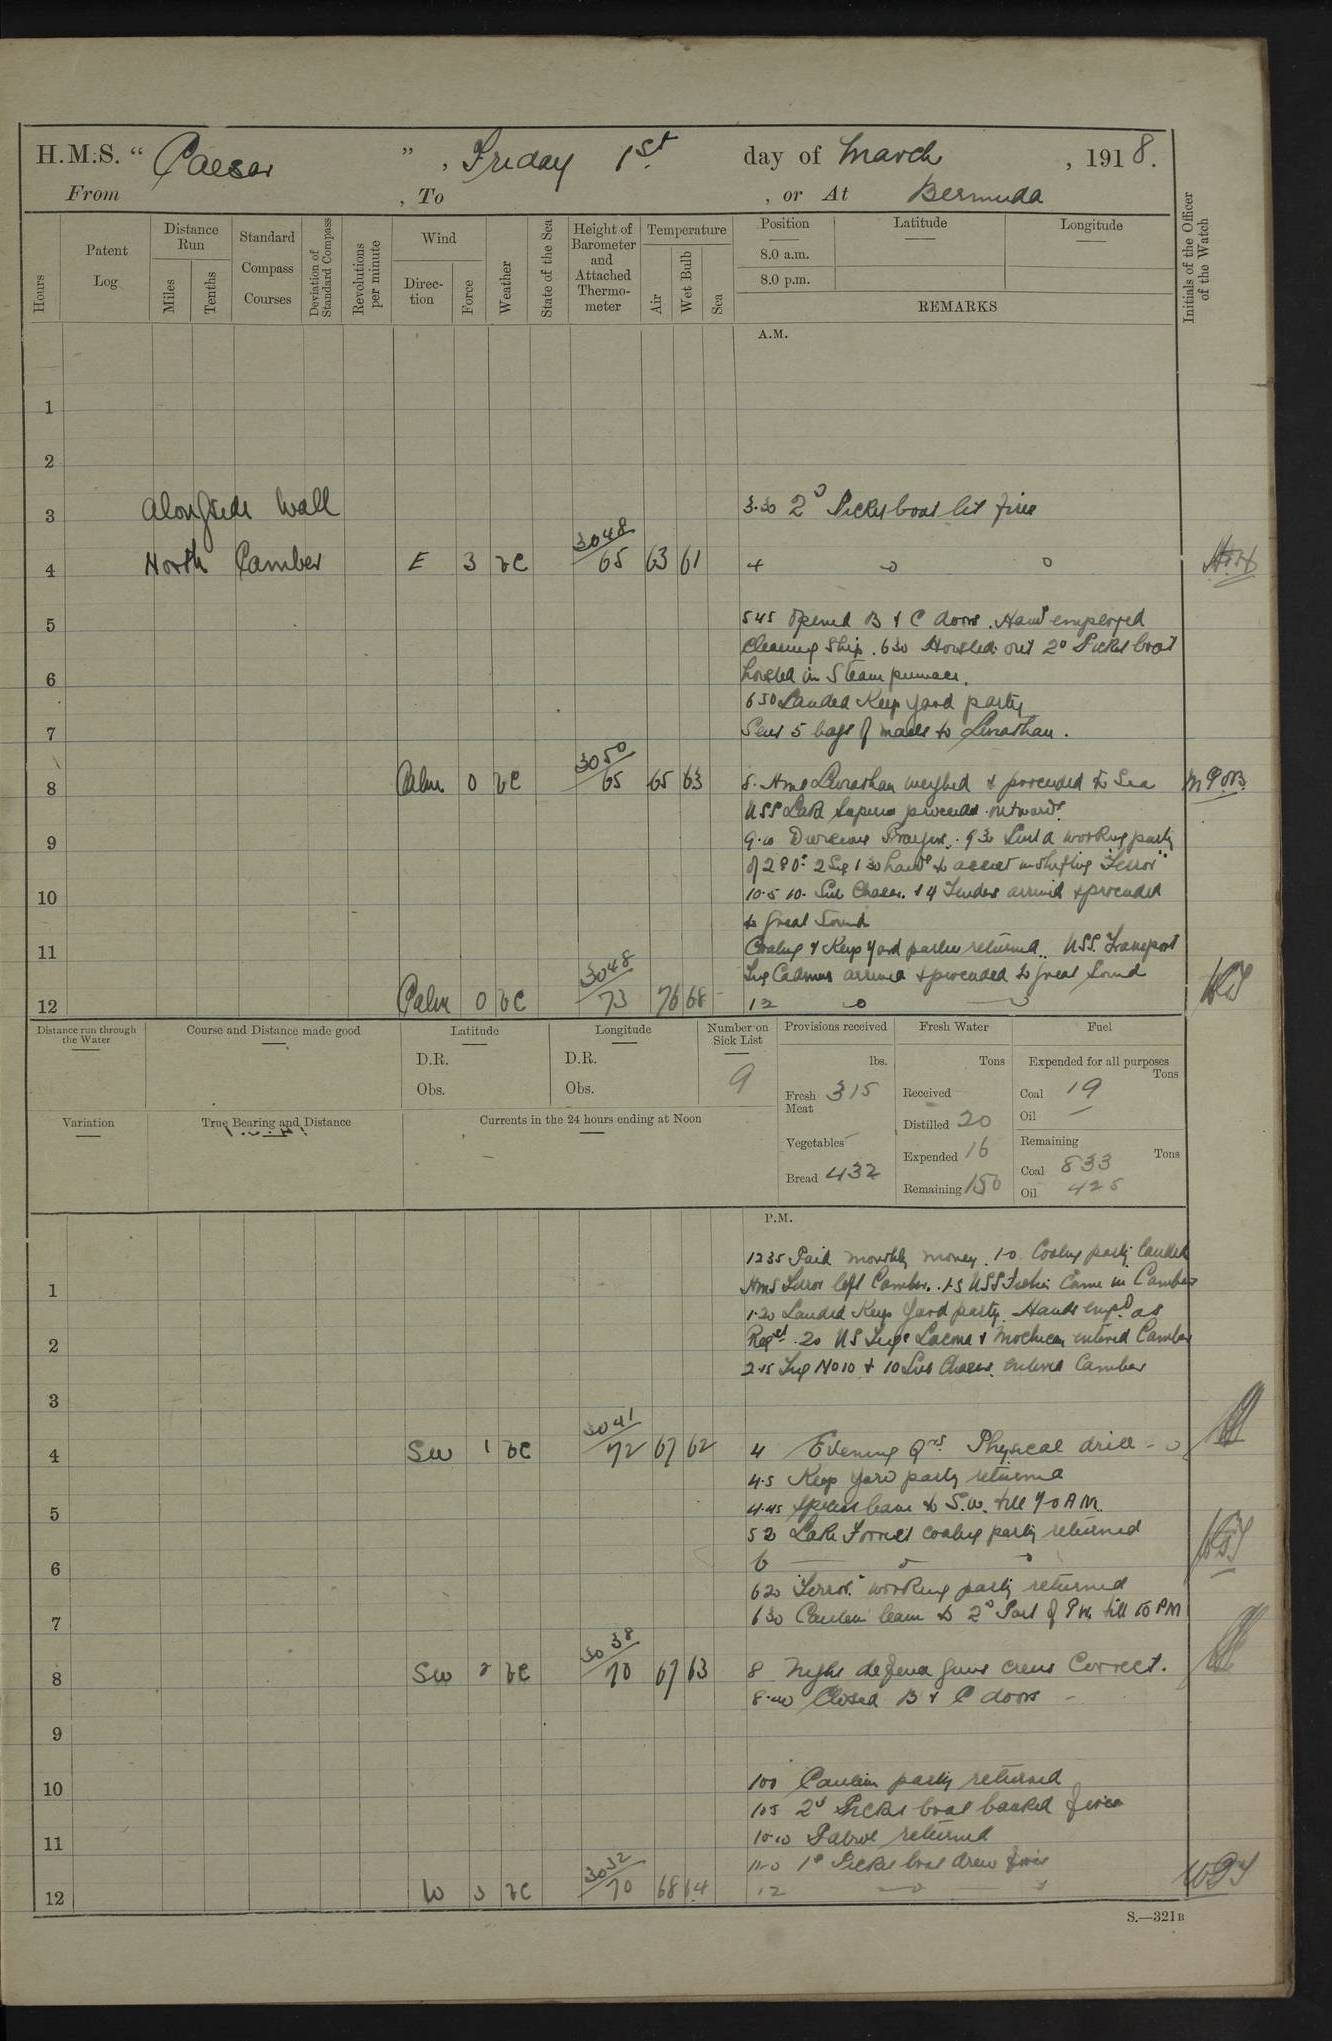 H.M.S. " Caesar ", Friday 1st day of March, 1918.
From , To , or At Bermuda
Hours
Patent Log
Distance Run
Miles
Tenths
Standard Compass Courses
Deviation of Standard Compass
Revolutions per minute
Wind
Direction
Force
Weather
State of the Sea
Height of Barometer and Attached Thermometer
Temperature
Air
Wet Bulb
Sea
Position
8.0 a.m.
8.0 p.m.
Latitude
Longitude
REMARKS
Initials of the Officer of the Watch
A.M.
1
2
3 Alongside Wall 3.30 2d Picket boat lit fires
4 North Camber E 3 bc 3048/65 63 61 4
5 545 Opened B & C doors. Hands employed
cleaning Ship. 630 Hoisted out 2d Picket boat
6 hoisted in Steam pinnace.
650 Landed Keep Yard party
7 Sent 5 bags of mails to Leviathan.
8 Calm 0 bc 3050/65 65 63 8. HMS Leviathan weighed & proceeded to Sea M
USS Lake Superior proceeded outwards
9 9.10 Divisions Prayers. 930 Sent a working party
of 2 POs 2 Sig 130 hands to assist in shifting "Terror"
10 10.5 10. Sub Chasers & 4 Tenders arrived & proceeded
to Great Sound
11 Coaling & Keep Yard parties returned. USS Transport
Tug Cadmus arrived & proceeded to Great Sound
12 Calm 0 bc 3048/73 76 68 12
Distance run through the Water
Course and Distance made good
Latitude
D.R.
Obs.
Longitude
D.R.
Obs.
Number on Sick List
9
Provisions received
lbs.
Fresh Meat 315
Vegetables
Bread 432
Fresh Water
Tons
Received
Distilled 20
Expended 16
Remaining 150
Fuel
Expended for all purposes
Tons
Coal 19
Oil —
Remaining
Tons
Coal 833
Oil 425
Variation
True Bearing and Distance
Currents in the 24 hours ending at Noon
P.M.
1235 Paid monthly money. 1.0 Coaling party landed
1 HMS Terror left Camber. 1.5 USS came in Camber
1.20 Landed Keep Yard party. Hands empd as
2 Reqd. 20 US Tugs & Mohican entered Camber
2.15 Tug No 10 & 10 Sub Chasers entered Camber
3
4 SW 1 bc 3041/72 67 62 4 Evening Qrs. Physical drill
4.5 Keep Yard party returned
5 4.45 leave to S.W. till 7.0 AM.
5 20 Lake Forrest coaling party returned
6 6
620 "Terror" working party returned
7 630 Canteen leave to 2d Part of P.W. till 10 PM
8 SW 2 bc 3038/70 67 63 8 Night defence guns crews Correct.
8.40 Closed B & C doors
9
10 100 Canteen party returned
105 2d Picket boat banked fires
11 10.10 Patrol returned
11.0 1st Picket boat drew fires
12 W 3 bc 3032/70 68 64 12
S.—321B